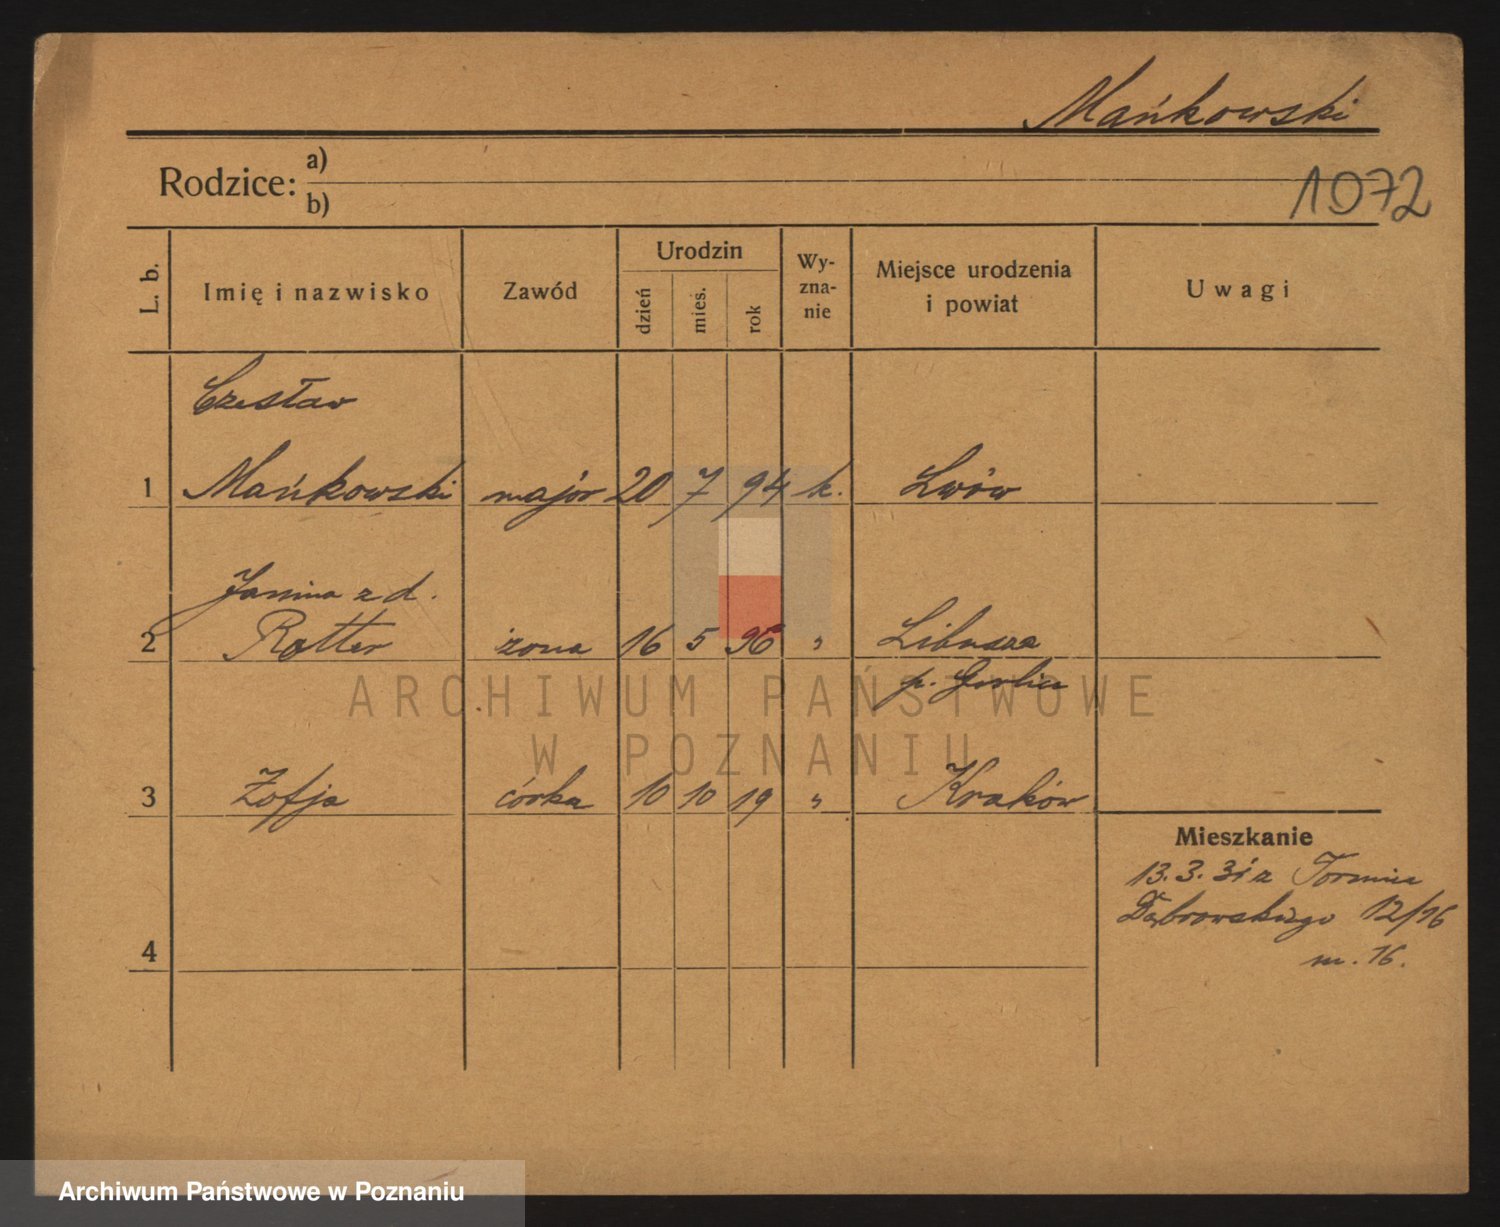 Mańkowski
Rodzice: a)
b)
1072
L. b.
Imię i nazwisko
Zawód
Urodzin
dzień
mies.
rok
Wy-
zna-
nie
Miejsce urodzenia
i powiat
Uwagi
Czesław
1 Mańkowski major 20 7 94 k. Lwów
Janina z d.
2 Rotter żona 16 5 96 " Libusza
p. Gorlice
ARCHIWUM PAŃSTWOWE
W POZNANIU
3 Zofja córka 10 10 19 " Kraków
Mieszkanie
13.3.31 z Torunia
Dąbrowskiego 12/16
m. 16.
4
Archiwum Państwowe w Poznaniu